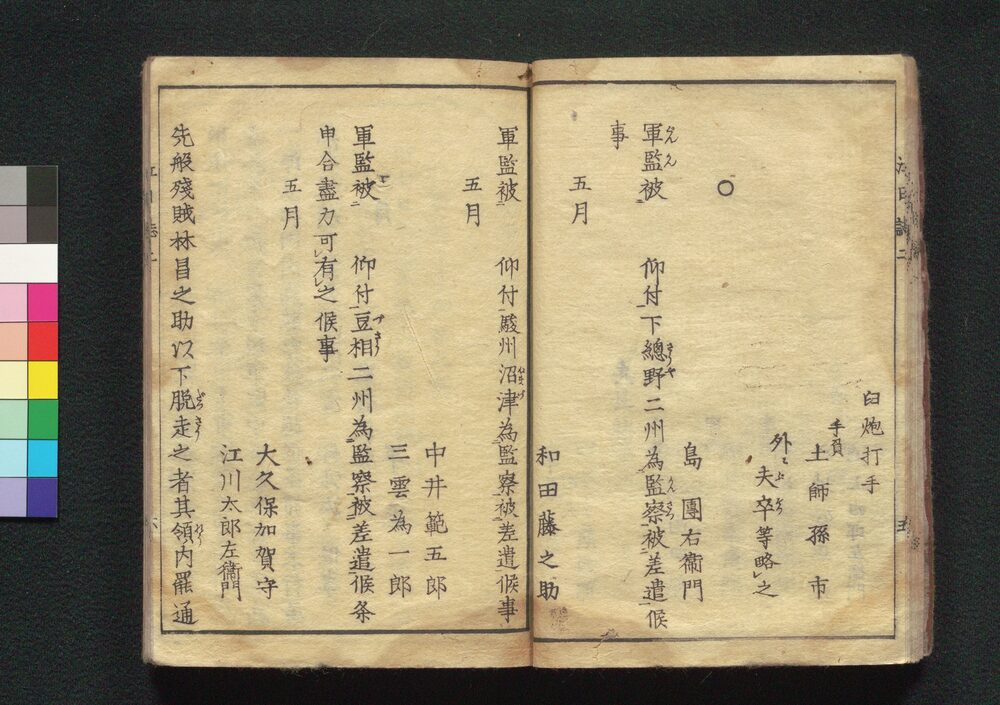 臼炮打手
手負
土師孫市
外ニ夫卒等略之
○
島團右衞門
軍監被 仰付下總野二州為監察被差遣候
事
五月
和田藤之助
軍監被 仰付駿州沼津為監察被差遣候事
五月
中井範五郎
三雲為一郎
軍監被 仰付豆相二州為監察被差遣候条
申合盡力可有之候事
五月
大久保加賀守
江川太郎左衞門
先般殘賊林昌之助以下脱走之者其領内罷通